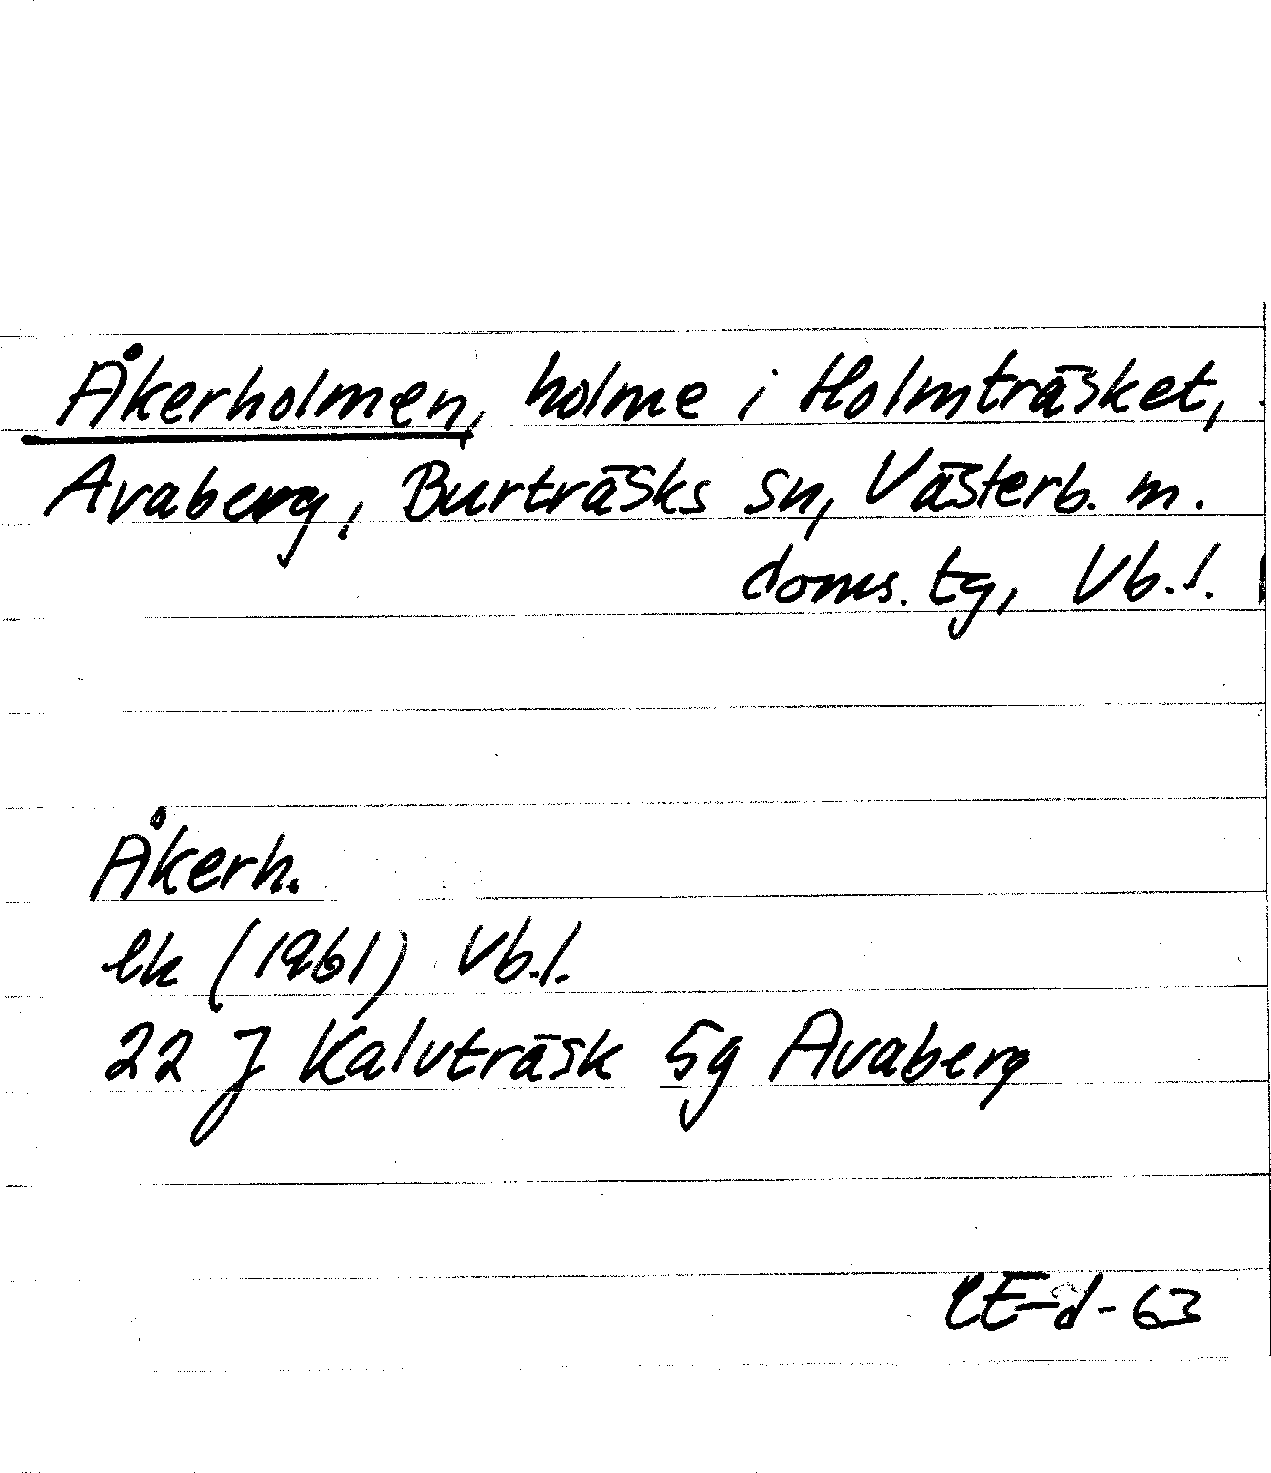 Åkerholmen, holme i Holmträsket,
Avaberg, Burträsks sn, Västerb. m.
doms. tg, Vb. l.
Åkerh.
ek (1961) Vb. l.
22 J Kalvträsk 5g Avaberg
CE-d-63